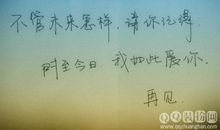 不管未来怎样，请你记得
时至今日，我如此爱你.
再见
装房网
www.qizuang.com